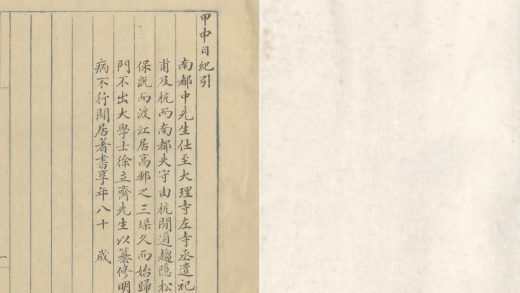 甲申日紀引
南都中先生仕至大理寺左寺丞遣祀
甫及杭而南都失守由杭間道趨隱松
保既而渡江居高郵之三垜久而始歸
門不出大學士徐立齊先生以纂修明
病不行閒居著書享年八十 歲